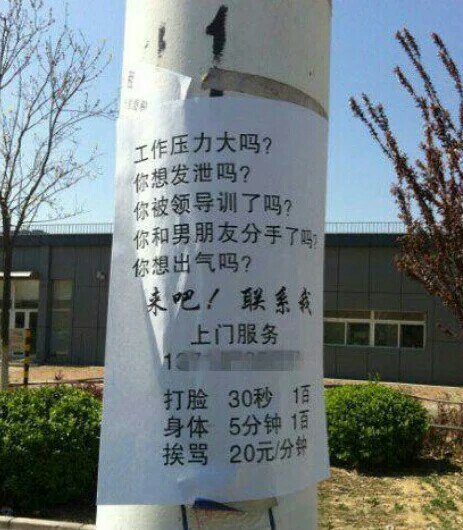 1
工作压力大吗?
你想发泄吗?
你被领导训了吗?
你和男朋友分手了吗?
你想出气吗?
来吧! 联系我
上门服务
打脸 30秒 1百
身体 5分钟 1百
挨骂 20元/分钟